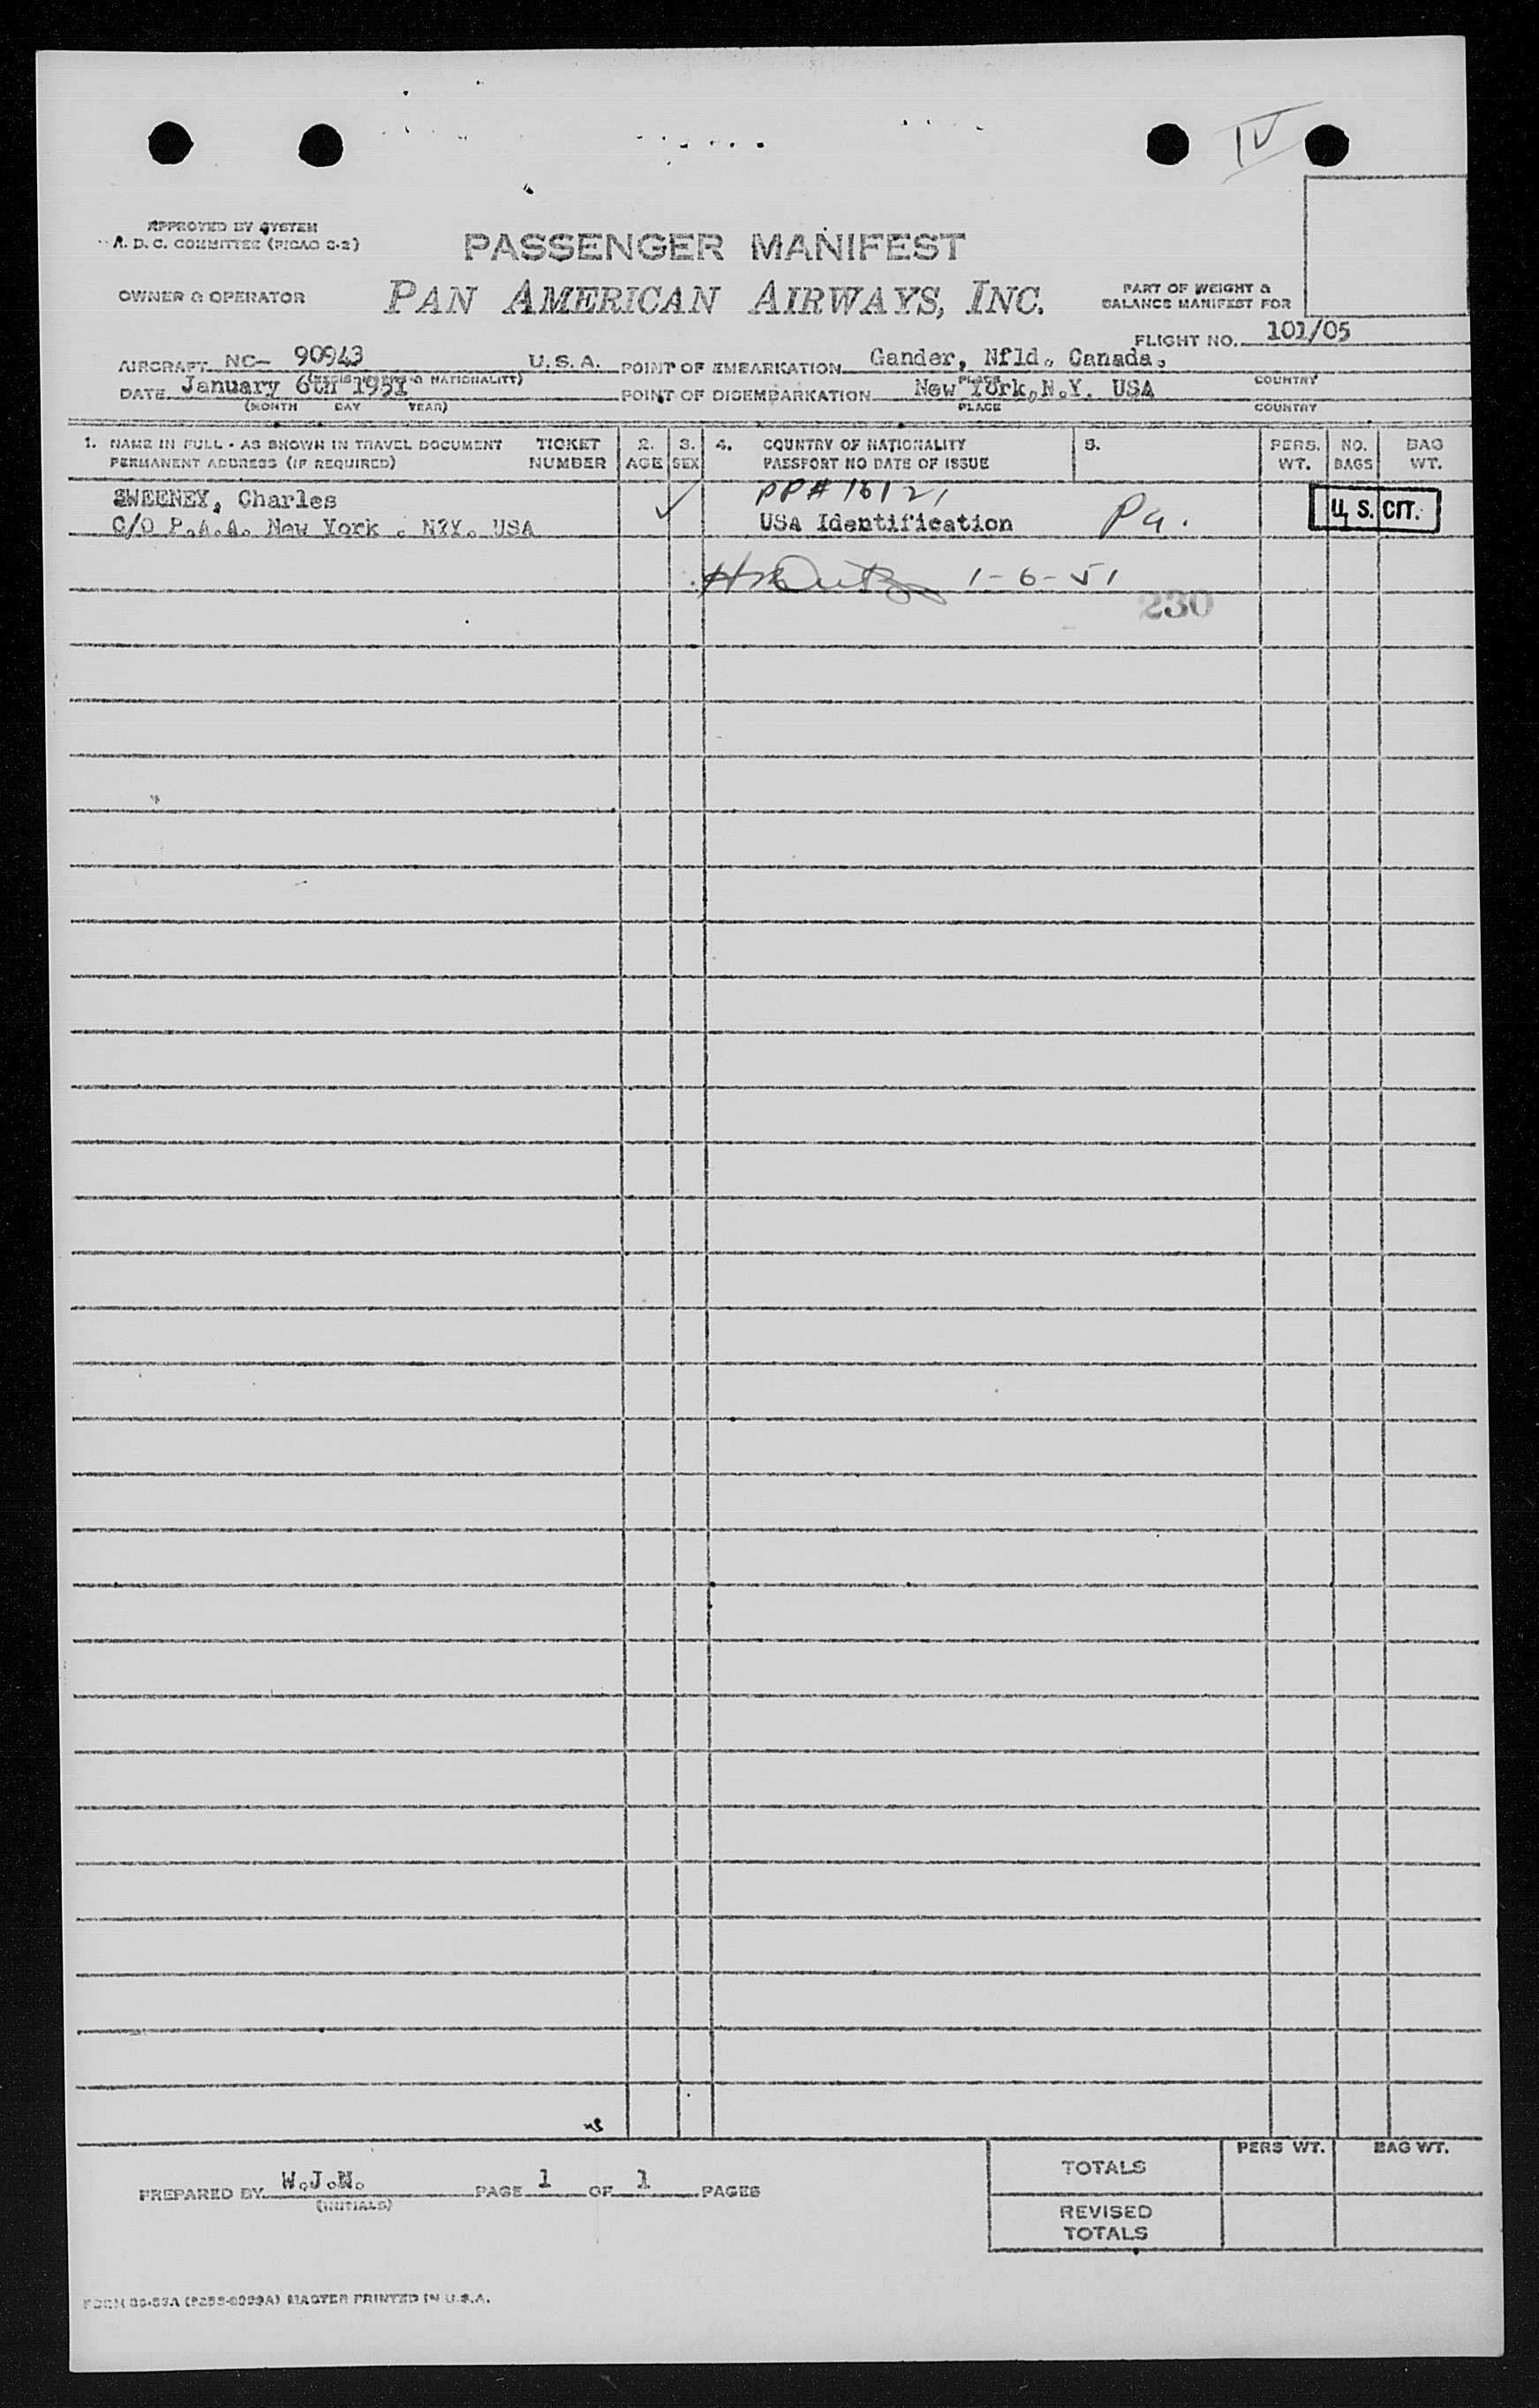 IV
APPROVED BY SYSTEM
A. D. C. COMMITTEE (PICAO S-2)
PASSENGER MANIFEST
OWNER & OPERATOR
PAN AMERICAN AIRWAYS, INC.
PART OF WEIGHT &
BALANCE MANIFEST FOR
FLIGHT NO. 101/05
AIRCRAFT NC- 90943 U. S. A. POINT OF EMBARKATION Gander, Nfld. Canada.
& NATIONALITY) PLACE COUNTRY
DATE January 6th 1951 POINT OF DISEMBARKATION New York, N.Y. USA
(MONTH DAY YEAR) PLACE COUNTRY
1. NAME IN FULL - AS SHOWN IN TRAVEL DOCUMENT TICKET 2. 3. 4. COUNTRY OF NATIONALITY 5. PERS. NO. BAG
PERMANENT ADDRESS (IF REQUIRED) NUMBER AGE SEX PASSPORT NO DATE OF ISSUE WT. BAGS WT.
SWEENEY, Charles PP# 16121
C/O P.A.A. New York . N?Y. USA USA Identification Pa. U. S. CIT.
1-6-51
230
PREPARED BY W.J.N. PAGE 1 OF 1 PAGES
(INITIALS)
PERS WT. BAG WT.
TOTALS
REVISED
TOTALS
MASTER PRINTED IN U.S.A.